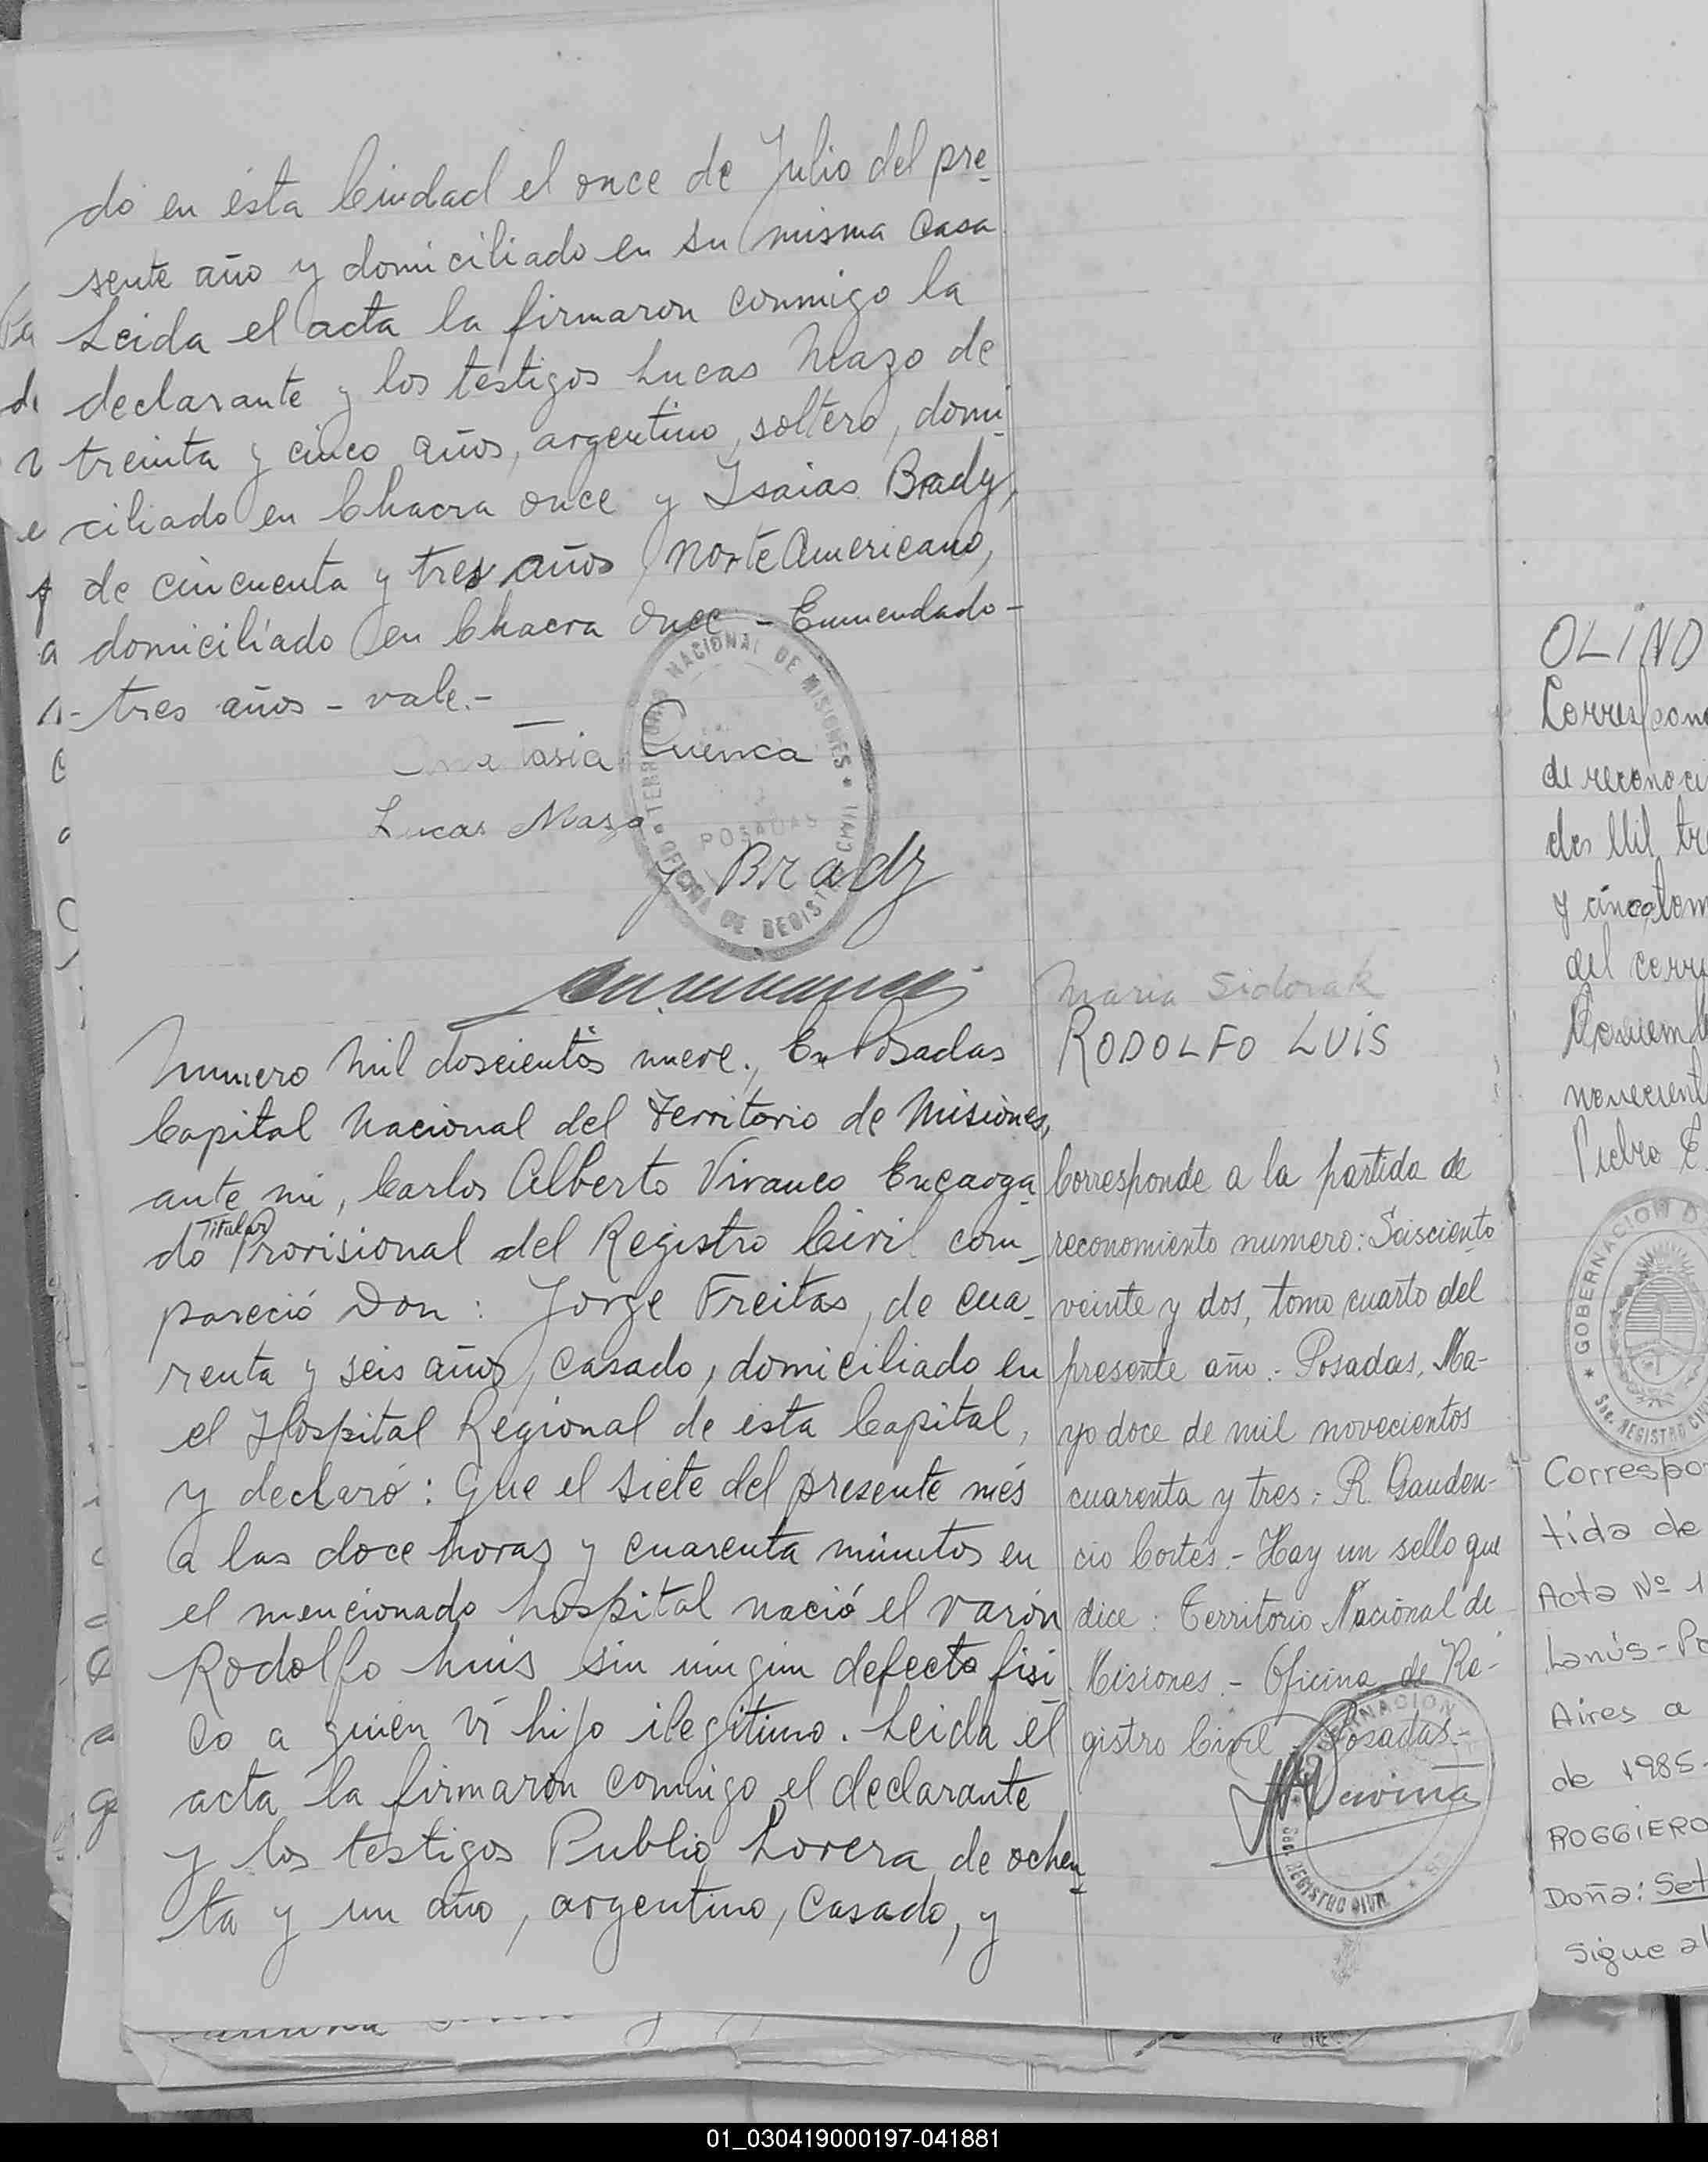 do en ésta Ciudad el once de Julio del pre-
sente año y domiciliado en su misma casa
Leida el acta la firmaron conmigo la
declarante y los testigos Lucas Mazo de
treinta y cinco años, argentino, soltero, domi-
ciliado en Chacra once y Isaias Brady,
de cincuenta y tres años Norte Americano,
domiciliado en Chacra once - Enmendado -
- tres años - vale.-
Anastasia Cuenca
Lucas Mazo
Brady
TERRITORIO NACIONAL DE MISIONES
POSADAS
OFICINA DE REGISTRO CIVIL
Numero mil doscientos nueve., En Posadas
Capital Nacional del Territorio de Misiones,
ante mi, Carlos Alberto Vivanco Encarga-
Titular
do Provisional del Registro Civil com-
pareció Don: Jorge Freitas, de cua-
renta y seis años, casado, domiciliado en
el Hospital Regional de esta Capital,
y declaró: Que el siete del presente més
a las doce horas y cuarenta minutos en
el mencionado hospital nació el varón
Rodolfo Luis sin ningun defecto fisi-
co a quien ví hijo ilegitimo. Leida el
acta la firmaron conmigo el declarante
y los testigos Publio Lovera de ochen-
ta y un año, argentino, casado, y
Maria Sidorak
RODOLFO LUIS
Corresponde a la partida de
reconomiento numero: Seisciento
veinte y dos, tomo cuarto del
presente año.- Posadas, Ma-
yo doce de mil novecientos
cuarenta y tres.- R. Gauden-
cio Cortés.- Hay un sello que
dice: Territorio Nacional de
Misiones.- Oficina de Re-
gistro Civil - Posadas.-
REGISTRO CIVIL
OLIND
Correspon
de reconoci
dos Mil tr
del corri
novecient
Pedro E
GOBERNACION D
Sec. REGISTRO CIV
Correspo
tida de
Acta Nº 1
Lanús - Po
Aires a
de 1985.
ROGGIERO
Doña: Set
Sigue al
01_030419000197-041881